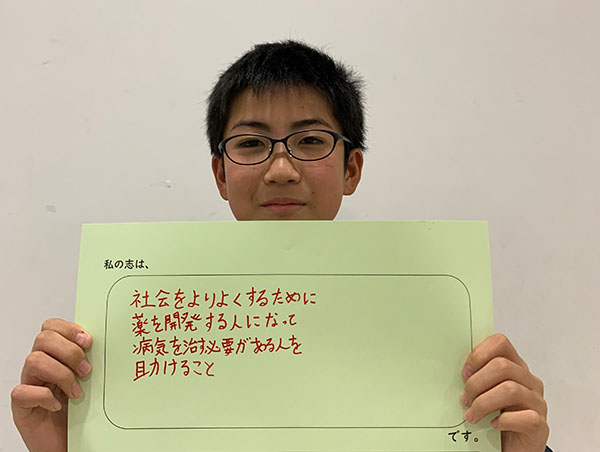 私の志は、
社会をよりよくするために
薬を開発する人になって
病気を治す必要がある人を
助けること
です。